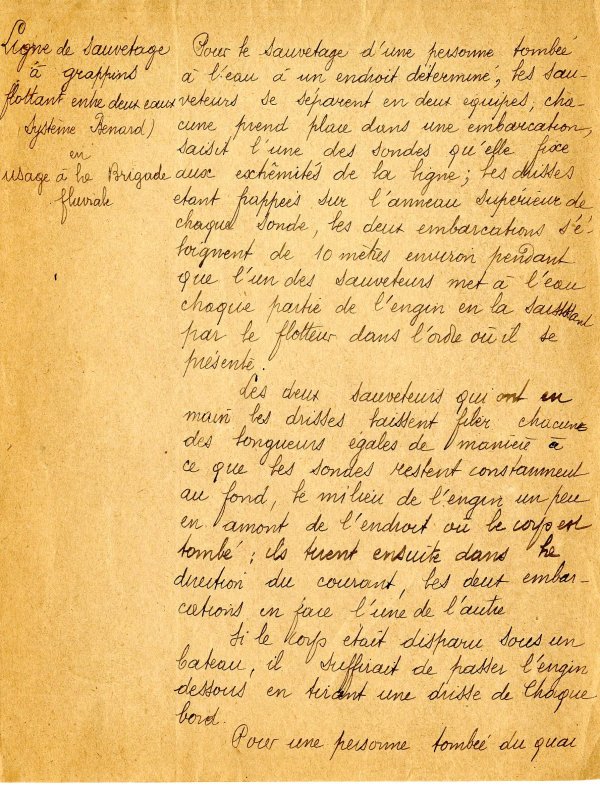 Ligne de sauvetage
à grappins
flottant entre deux eaux
Système Benard)
en
usage à la Brigade
fluviale
Pour le sauvetage d'une personne tombée
à l'eau à un endroit déterminé, les sau-
veteurs se séparent en deux equipes, cha-
cune prend place dans une embarcation,
saisit l'une des sondes qu'elle fixe
aux extrêmités de la ligne; les drisses
etant frappées sur l'anneau supérieur de
chaque sonde, les deux embarcations s'é-
loignent de 10 mètres environ pendant
que l'un des sauveteurs met à l'eau
chaque partie de l'engin en la saisissant
par le flotteur dans l'ordre où il se
présente.
Les deux sauveteurs qui ont en
main les drisses laissent filer chacune
des longueurs égales de manière à
ce que les sondes restent constamment
au fond, le milieu de l'engin un peu
en amont de l'endroit où le corps est
tombé; ils tirent ensuite dans la
direction du courant, les deux embar-
cations en face l'une de l'autre
Si le corps était disparu sous un
bateau, il suffirait de passer l'engin
dessous en tirant une drisse de chaque
bord.
Pour une personne tombée du quai